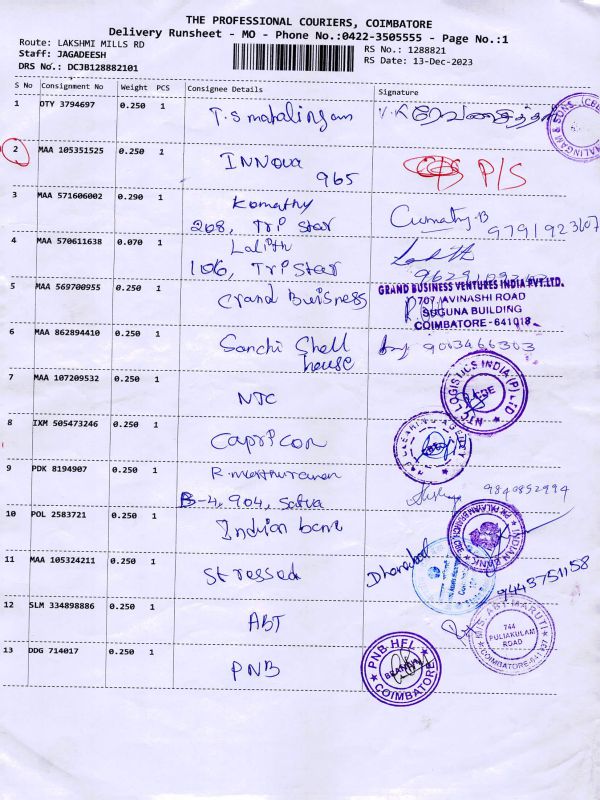 THE PROFESSIONAL COURIERS, COIMBATORE
Delivery Runsheet - MO - Phone No.:0422-3505555 - Page No.:1
Route: LAKSHMI MILLS RD
Staff: JAGADEESH
DRS No.: DCJB128882101
RS No.: 1288821
RS Date: 13-Dec-2023
S No Consignment No Weight PCS Consignee Details Signature
1 OTY 3794697 0.250 1 T.S mahalingam
2 MAA 105351525 0.250 1 INNova 965 P/S
3 MAA 571606002 0.290 1 Komathy
208, Tri Star
9791923607
4 MAA 570611638 0.070 1 Lalith
106, Tri Star
5 MAA 569700955 0.250 1 Grand Buisness
GRAND BUSINESS VENTURES INDIA PVT.LTD.
707, AVINASHI ROAD
SUGUNA BUILDING
COIMBATORE - 641018.
6 MAA 862894410 0.250 1 Sanchi Shell house
9003466303
7 MAA 107209532 0.250 1 NTC
NTC LOGISTICS INDIA (P) LTD
8 IXM 505473246 0.250 1 Capricon
CLEARING AGENT
9 PDK 8194907 0.250 1 R.
B-4, 904, Satva
9840852994
10 POL 2583721 0.250 1 Indian bank
INDIAN BANK
11 MAA 105324211 0.250 1 Stressed
9443751158
12 SLM 334898886 0.250 1 ABT
M/S. ABT MARUTI
744
PULIAKULAM
ROAD
COIMBATORE-641 037
13 DDG 714017 0.250 1 PNB
PNB HFL
BRANCH
COIMBATORE